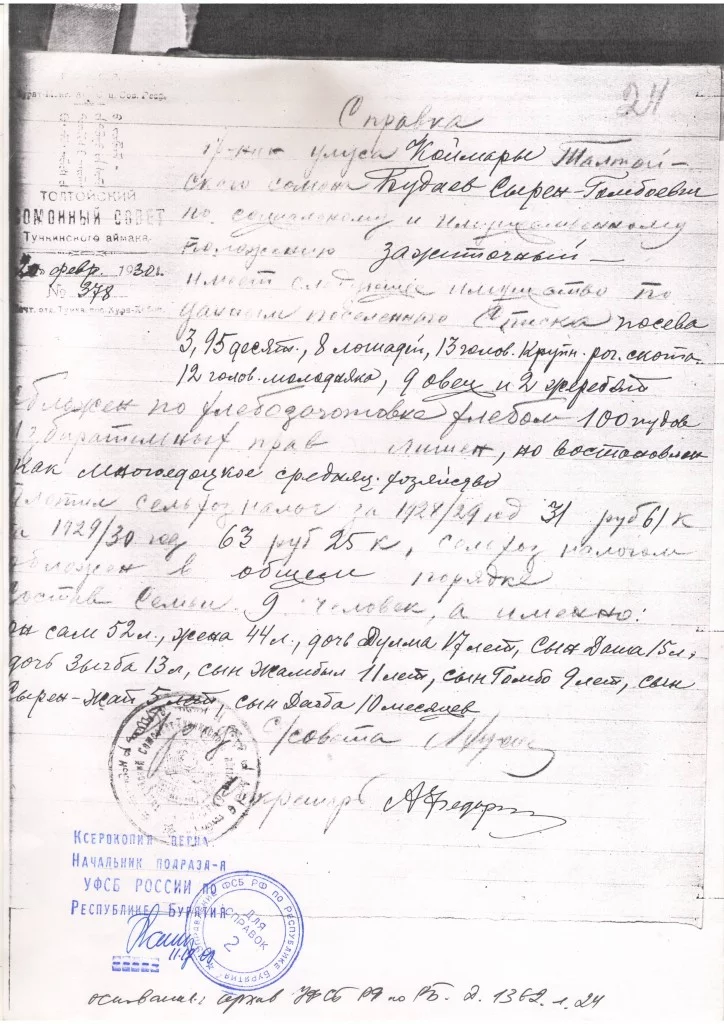 24
Справка
улуса Коймары Толтой-
ского сомона Будаев Сырен-Гомбоевич
по социальному и имущественному
положению зажиточный —
имеет следующее имущество по
данным поселенного списка посева
3,95 десят., 8 лошадей, 13 голов. Крупн. рог. скота.
12 голов. молодняка, 9 овец и 2 жеребят
обложен по хлебозаготовке хлебом 100 пудов
избирательных прав лишен, но востановлен
Как многоедоцкое середняц. хозяйство
платил сельхозналог за 1928/29 год 31 руб 61 к
за 1929/30 год 63 руб 25 к, сельхоз налогом
обложен в общем порядке
состав семьи 9 человек, а именно:
он сам 52 л., жена 44 л., дочь Дулма 17 лет, сын Даша 15 л.,
дочь 13 л, сын Жамбыл 11 лет, сын Гомбо 9 лет, сын
Сырен-Жап 5 лет, сын Дагба 10 месяцев
С/совета
Секретарь
ТОЛТОЙСКИЙ
СОМОННЫЙ СОВЕТ
Тункинского аймака
февр. 1930 г.
№ 378
Ксерокопия верна
Начальник подразд-я
УФСБ РОССИИ по
Республике Бурятия
ФСБ РФ ПО РЕСПУБЛИКЕ БУРЯТИЯ
ДЛЯ
СПРАВОК
2
основание: архив УФСБ РФ по РБ. д. 1362 л. 24